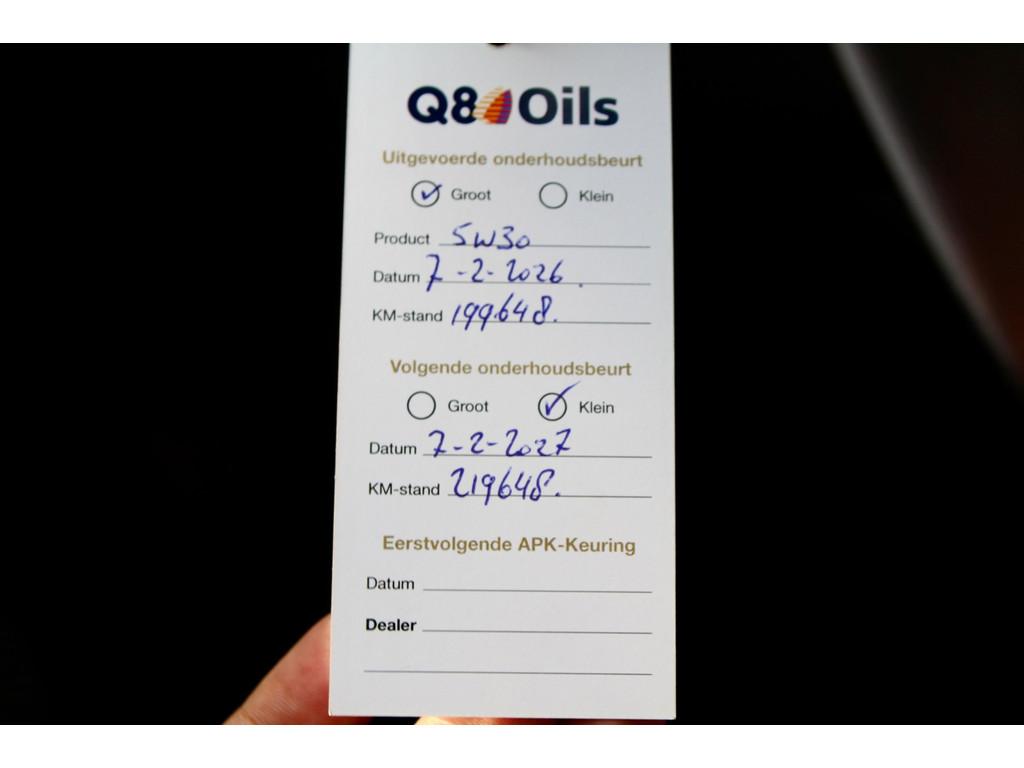 Q8 Oils
Uitgevoerde onderhoudsbeurt
Groot Klein
Product 5W30
Datum 7-2-2026.
KM-stand 199.648.
Volgende onderhoudsbeurt
Groot Klein
Datum 7-2-2027
KM-stand 219648.
Eerstvolgende APK-Keuring
Datum
Dealer